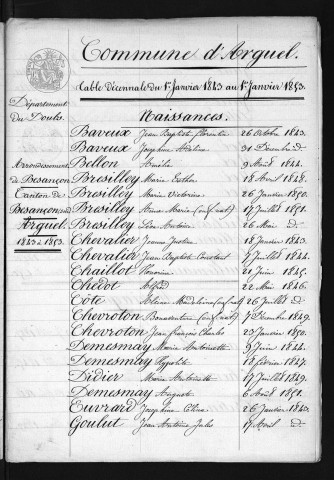 Commune d'Arguel.
Table décennale du 1er Janvier 1843 au 1er Janvier 1853.
Département
du Doubs.
Arrondissement
de Besançon
Canton de
Besançon
Arguel.
1843 à 1853.
Naissances.
Baveux Jean Baptiste Florentin 26 Octobre 1843.
Baveux Josephine Adeline 31 Décembre d°
Bellon Amélie 9 Août 1844.
Bresilley Marie Esther 18 Avril 1848.
Bresilley Marie Victorine 26 Janvier 1850.
Bresilley Anna Maria (enf. nat.) 17 Juillet 1851.
Bresilley Léon Antoine 26 Mai d°
Chevalier Jeanne Justine 18 Janvier 1843.
Chevalier Jean Baptiste Constant 7 Juillet 1844.
Chaillot Honorine 21 Juin 1845.
Chedot Alfred 22 Mai 1846.
Côte Madeleine (enf. nat.) 26 Juillet d°
Chevroton Bonaventure (enf. nat.) 7 Décembre 1849.
Chevroton Jean François Charles 23 Janvier 1850.
Demesmay Marie Antoinette 9 Juin 1844.
Demesmay Hippolyte 18 Février 1847.
Didier Marie Antoinette 17 Juillet 1849.
Demesmay August 6 Août 1851.
Euvrard Josephine Célina 26 Janvier 1843.
Goulut Jean Antoine Jules 17 Avril d°